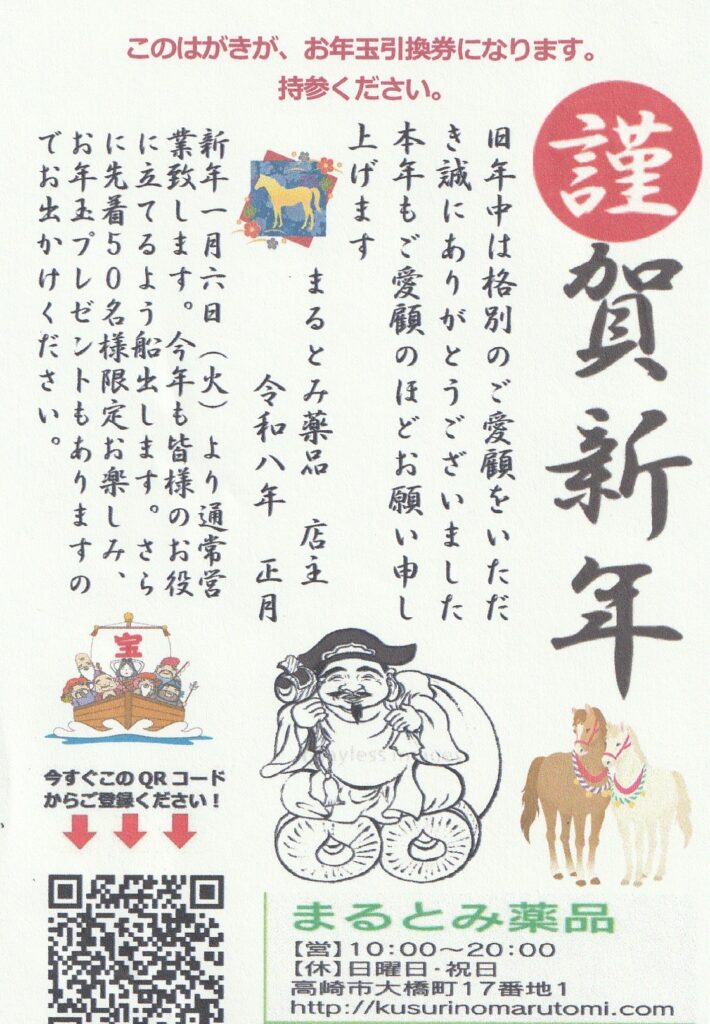 このはがきが、お年玉引換券になります。
持参ください。
謹賀新年
旧年中は格別のご愛顧をいただ
き誠にありがとうございました
本年もご愛顧のほどお願い申し
上げます
まるとみ薬品　店主
令和八年　正月
新年一月六日（火）より通常営
業致します。今年も皆様のお役
に立てるよう船出します。さら
に先着50名様限定お楽しみ、
お年玉プレゼントもありますの
でお出かけください。
宝
今すぐこのQRコード
からご登録ください！
まるとみ薬品
【営】10:00～20:00
【休】日曜日・祝日
高崎市大橋町17番地1
http://kusurinomarutomi.com